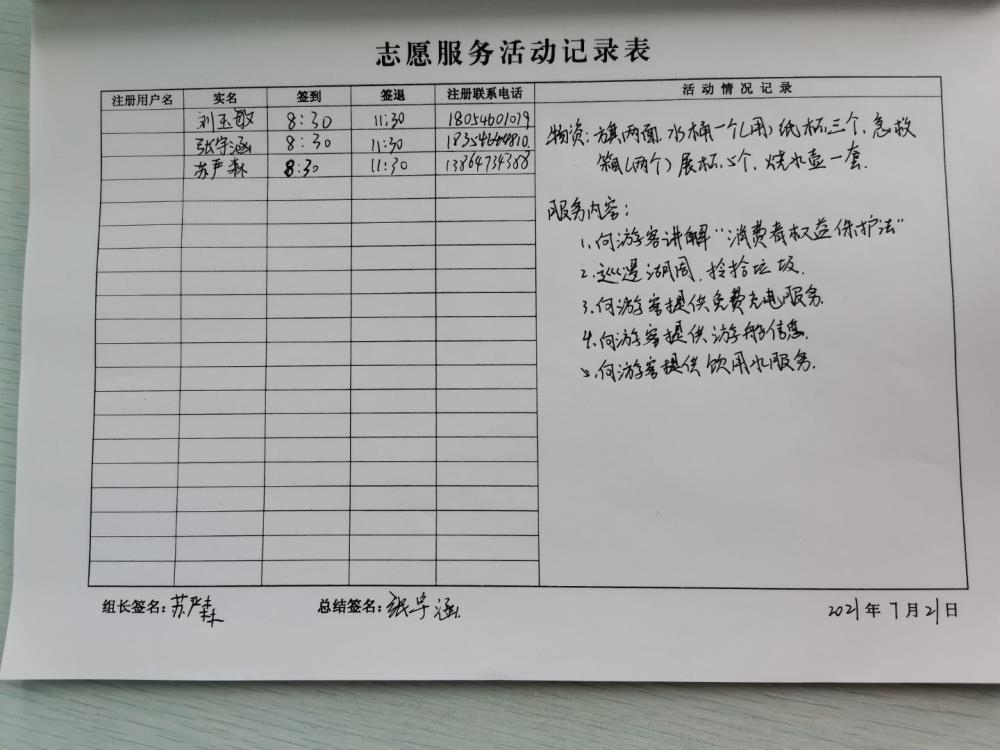 志愿服务活动记录表
注册用户名 实名 签到 签退 注册联系电话 活动情况记录
刘玉敏 8:30 11:30 18054601079
张宇涵 8:30 11:30
苏严森 8:30 11:30 13864734388
物资:旗两面,水桶一个(用)纸杯三个,急救
箱(两个)展杯5个,烧水壶一套.
服务内容:
1.向游客讲解"消费者权益保护法"
2.巡逻湖周,捡拾垃圾.
3.向游客提供免费充电服务.
4.向游客提供游船信息.
5.向游客提供饮用水服务.
组长签名:苏严森 总结签名:张宇涵 2021年7月21日